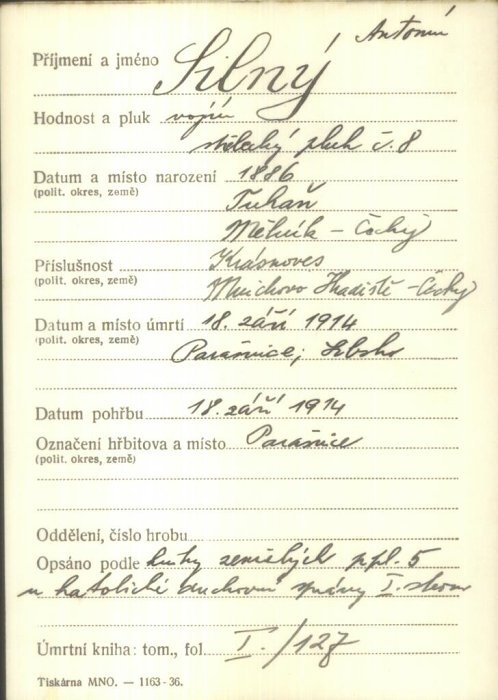 Příjmení a jméno Silný Antonín
Hodnost a pluk vojín
střelecký pluk č. 8
Datum a místo narození 1886
(polit. okres, země) Tuhaň
Mělník - Čechy
Příslušnost Krásnoves
(polit. okres, země) Mnichovo Hradiště - Čechy
Datum a místo úmrtí 18. září 1914
(polit. okres, země)
Parašnice, Srbsko
Datum pohřbu 18. září 1914
Označení hřbitova a místo Parašnice
(polit. okres, země)
Oddělení, číslo hrobu
Opsáno podle knihy zemřelých ppl. 5
u katolické duchovní správy I. sboru
Úmrtní kniha: tom., fol. I./127
Tiskárna MNO. — 1163-36.